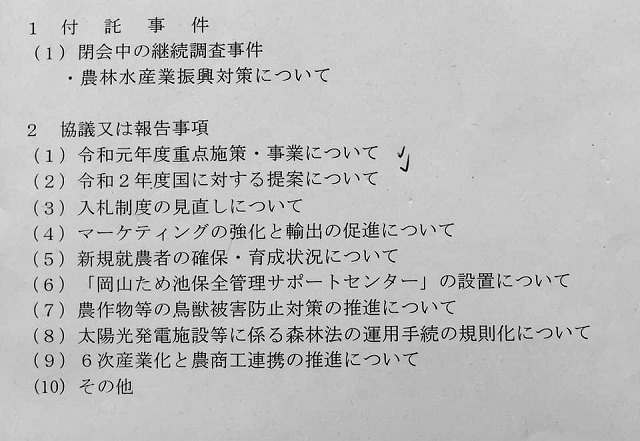 1 付託事件
(1) 閉会中の継続調査事件
・農林水産業振興対策について
2 協議又は報告事項
(1) 令和元年度重点施策・事業について
(2) 令和2年度国に対する提案について
(3) 入札制度の見直しについて
(4) マーケティングの強化と輸出の促進について
(5) 新規就農者の確保・育成状況について
(6) 「岡山ため池保全管理サポートセンター」の設置について
(7) 農作物等の鳥獣被害防止対策の推進について
(8) 太陽光発電施設等に係る森林法の運用手続の規則化について
(9) 6次産業化と農商工連携の推進について
(10) その他